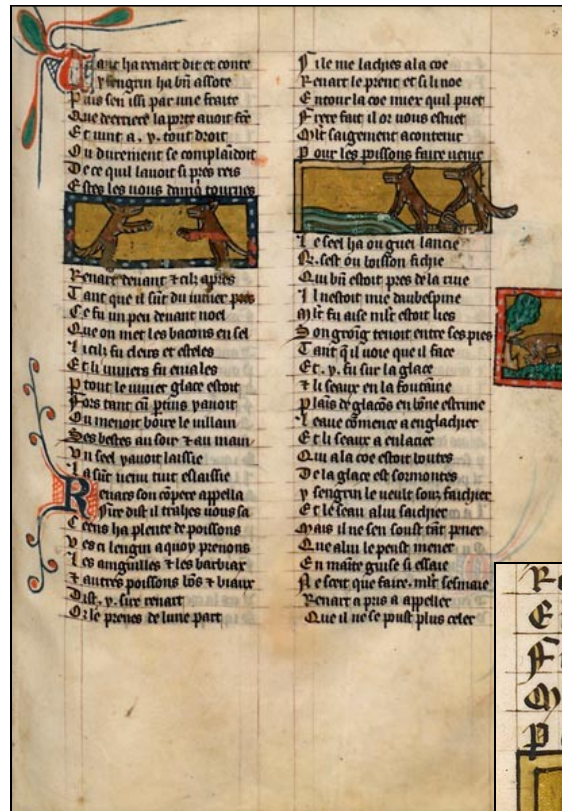 Tant ha renart dit et conte
ysengrin ha bñ assote
Puis sen issi par une fraite
Que derriere la porte auoit fce
Et uint a .y. tout droit
Qui durement se complaidoit
De ce quil lauoit si pres reis
Estes les uous dama tournes
Renart deuant & cil apres
Tant que il sūt du uiuier pres
Ce fu un peu deuant noel
Que on met les bacons en sel
Li cilz fu clers et esteles
Et li uiuiers fu emales
tout le uiuier glace estoit
Fors tant cū ptuis yauoit
On menoit boire le uillain
Ses bestes au soir & au main
Vn seel yauoit laissie
La sūt uenu tuit eslaissie
Renars son cōpere appella
Sire dist il traihes uous sa
Ceens ha plente de poissons
Vesci lengin a quoy prenons
Les ainguilles & les barbiax
& autres poissons bōs & biaux
Dist .y. sire renart
Or le prenes de lune part
Si le me lachies a la coe
Renart le prent et si li noe
Entour la coe miex quil puet
Frere fait il or uous estuet
Mlt saigement a contenir
Pour les poissons faire uenir
Le seel ha ou guei lancie
.R. sest ou buisson fichie
Qui bñ estoit pres de la riue
Il nestoit mie daubespine
Mlt fu aise mlt estoit lies
Son groing tenoit entre ses pies
Tant q̄ il uoie que il face
Et .y. fu sur la glace
& li seaux en la fontaine
Plais de glacōs en bōne estrune
Leaue cōmence a englachier
Et li seaux a enlacier
Qui a la coe estoit boutes
De la glace est sormontes
ysengrin le ueult souz faichier
Et le seau a lui saichier
Mais il ne sen soust tāt pener
Que a lui le peust mener
En mainte guise si essaie
Ne scet que faire. mlt sesmaie
Renart a pris a appeller
Que il ne se poust plus celer
Re
E
F
M
P